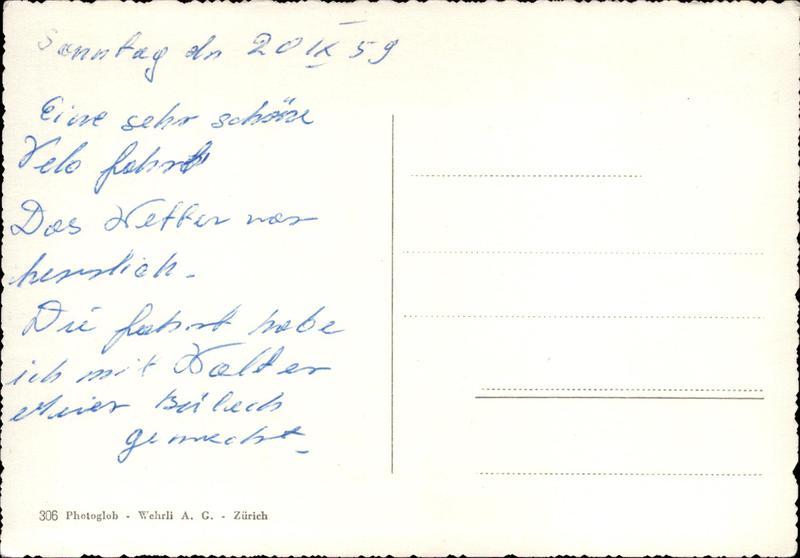 Sonntag dn 20 IX 59
Eine sehr schöne
Velo fahrt
Das Wetter war
herrlich.
Die fahrt habe
ich mit Walter
Meier Bülach
gemacht.
306 Photoglob - Wehrli A. G. - Zürich